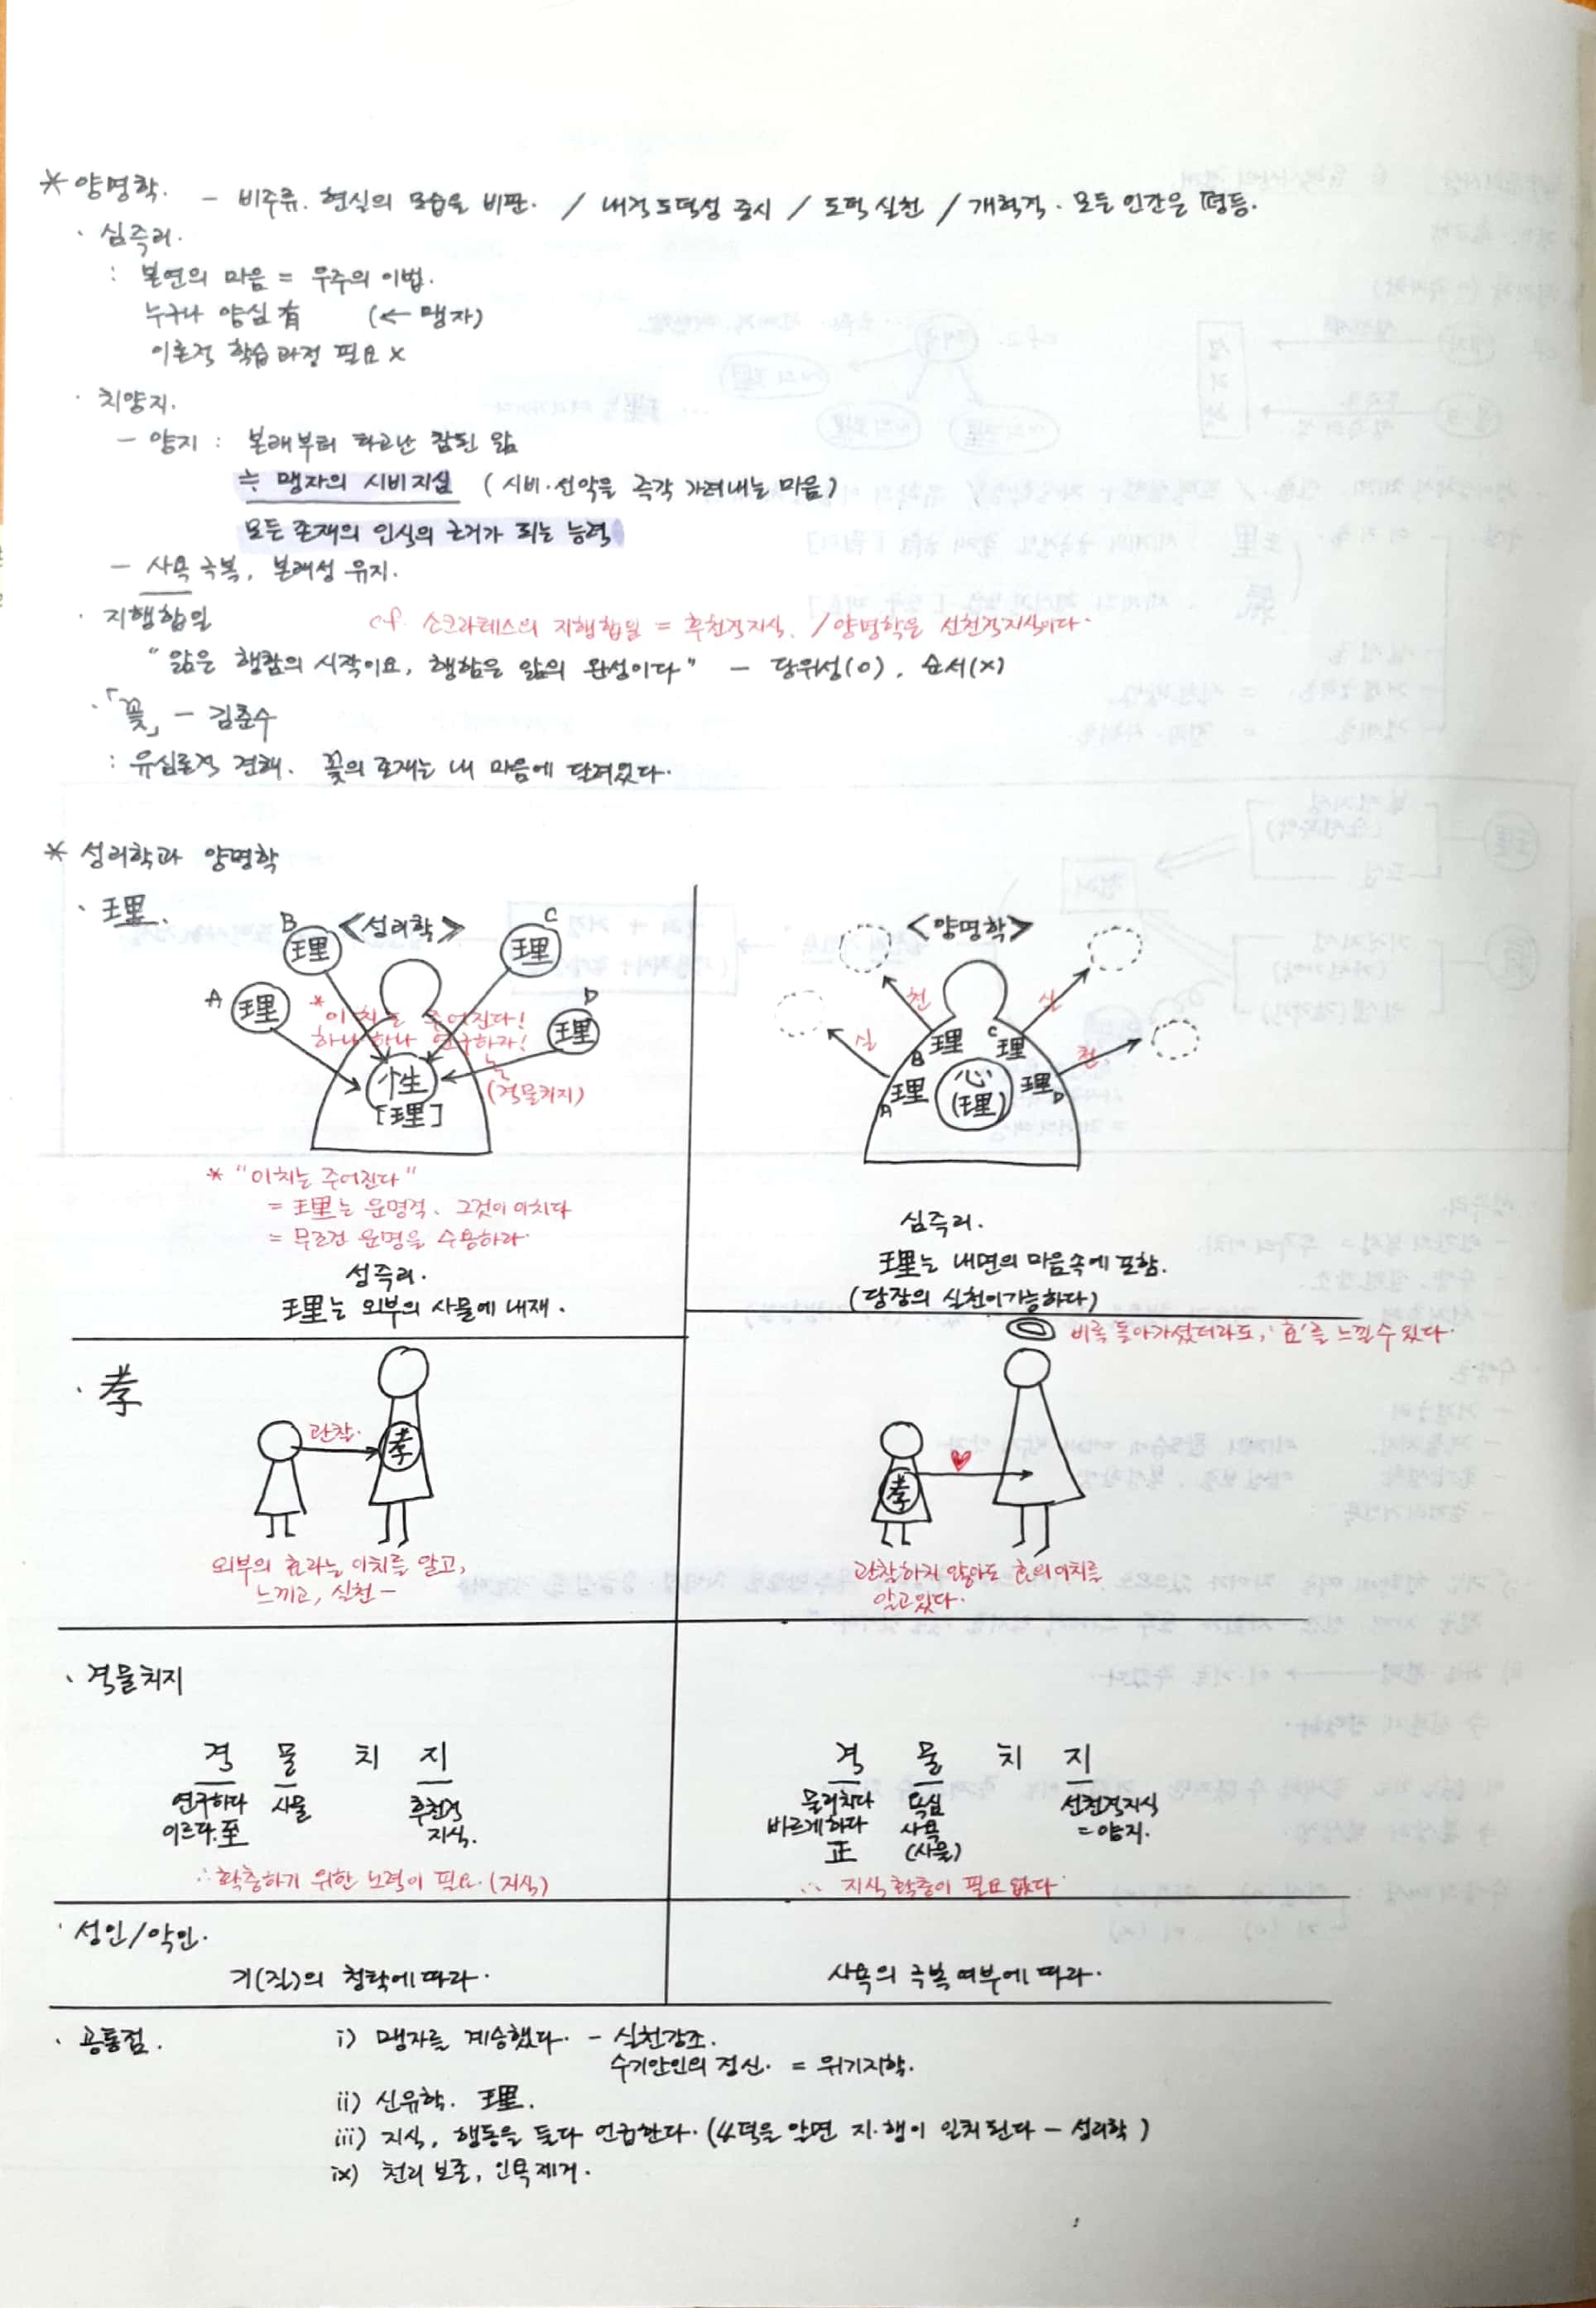 * 양명학. - 비주류. 현실의 모습을 비판. / 내적 도덕성 중시 / 도덕 실천 / 개혁적. 모든 인간은 평등.
· 심즉리.
: 본연의 마음 = 우주의 이법.
누구나 양심 有 (← 맹자)
이론적 학습과정 필요 x
· 치양지.
- 양지 : 본래부터 타고난 참된 앎
≒ 맹자의 시비지심 (시비·선악을 즉각 가려내는 마음)
모든 존재의 인식의 근거가 되는 능력
- 사욕 극복, 본래성 유지.
· 지행합일 cf. 소크라테스의 지행합일 = 후천적지식. / 양명학은 선천적지식이다.
"앎은 행함의 시작이요, 행함은 앎의 완성이다" - 당위성(o), 순서(x)
·「꽃」 - 김춘수
: 유심론적 견해. 꽃의 존재는 내 마음에 달려있다.
* 성리학과 양명학
· 理.
≪성리학≫
A 理
B 理
C 理
D 理
* 이치는 주어진다!
하나 하나 연구하자!
(격물치지)
性
[理]
* "이치는 주어진다"
= 理는 운명적. 그것이 이치다
= 무조건 운명을 수용하라.
성즉리.
理는 외부의 사물에 내재.
≪양명학≫
실 천 실 천
A 理
B 理
C 理
D 理
心
(理)
심즉리.
理는 내면의 마음속에 포함.
(당장의 실천이 가능하다)
· 孝
관찰.
孝
외부의 효라는 이치를 알고,
느끼고, 실천-
비록 돌아가셨더라도, '효'를 느낄 수 있다.
孝
관찰하지 않아도 효의 이치를
알고있다.
· 격물치지
격 물 치 지
연구하다 사물 후천적
이르다. 至 지식.
∴ 확충하기 위한 노력이 필요. (지식)
격 물 치 지
물리치다 욕심 선천적지식
바르게하다 사욕 = 양지.
正 (사물)
∴ 지식 확충이 필요 없다.
· 성인/악인.
기(질)의 청탁에 따라.
사욕의 극복 여부에 따라.
· 공통점.
i) 맹자를 계승했다. - 실천강조.
수기안인의 정신. = 위기지학.
ii) 신유학. 理.
iii) 지식, 행동을 둘다 언급한다. (4덕을 알면 지·행이 일치된다 - 성리학)
ix) 천리 보존, 인욕 제거.